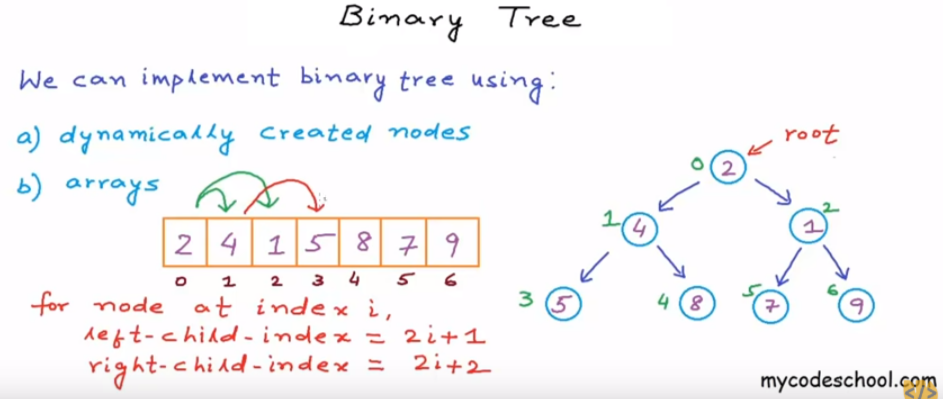 Binary Tree
We can implement binary tree using:
a) dynamically created nodes
b) arrays
2 4 1 5 8 7 9
0 1 2 3 4 5 6
for node at index i,
left-child-index = 2i+1
right-child-index = 2i+2
root
0 2
1 4
1 2
3 5
4 8
5 7
6 9
mycodeschool.com
</>